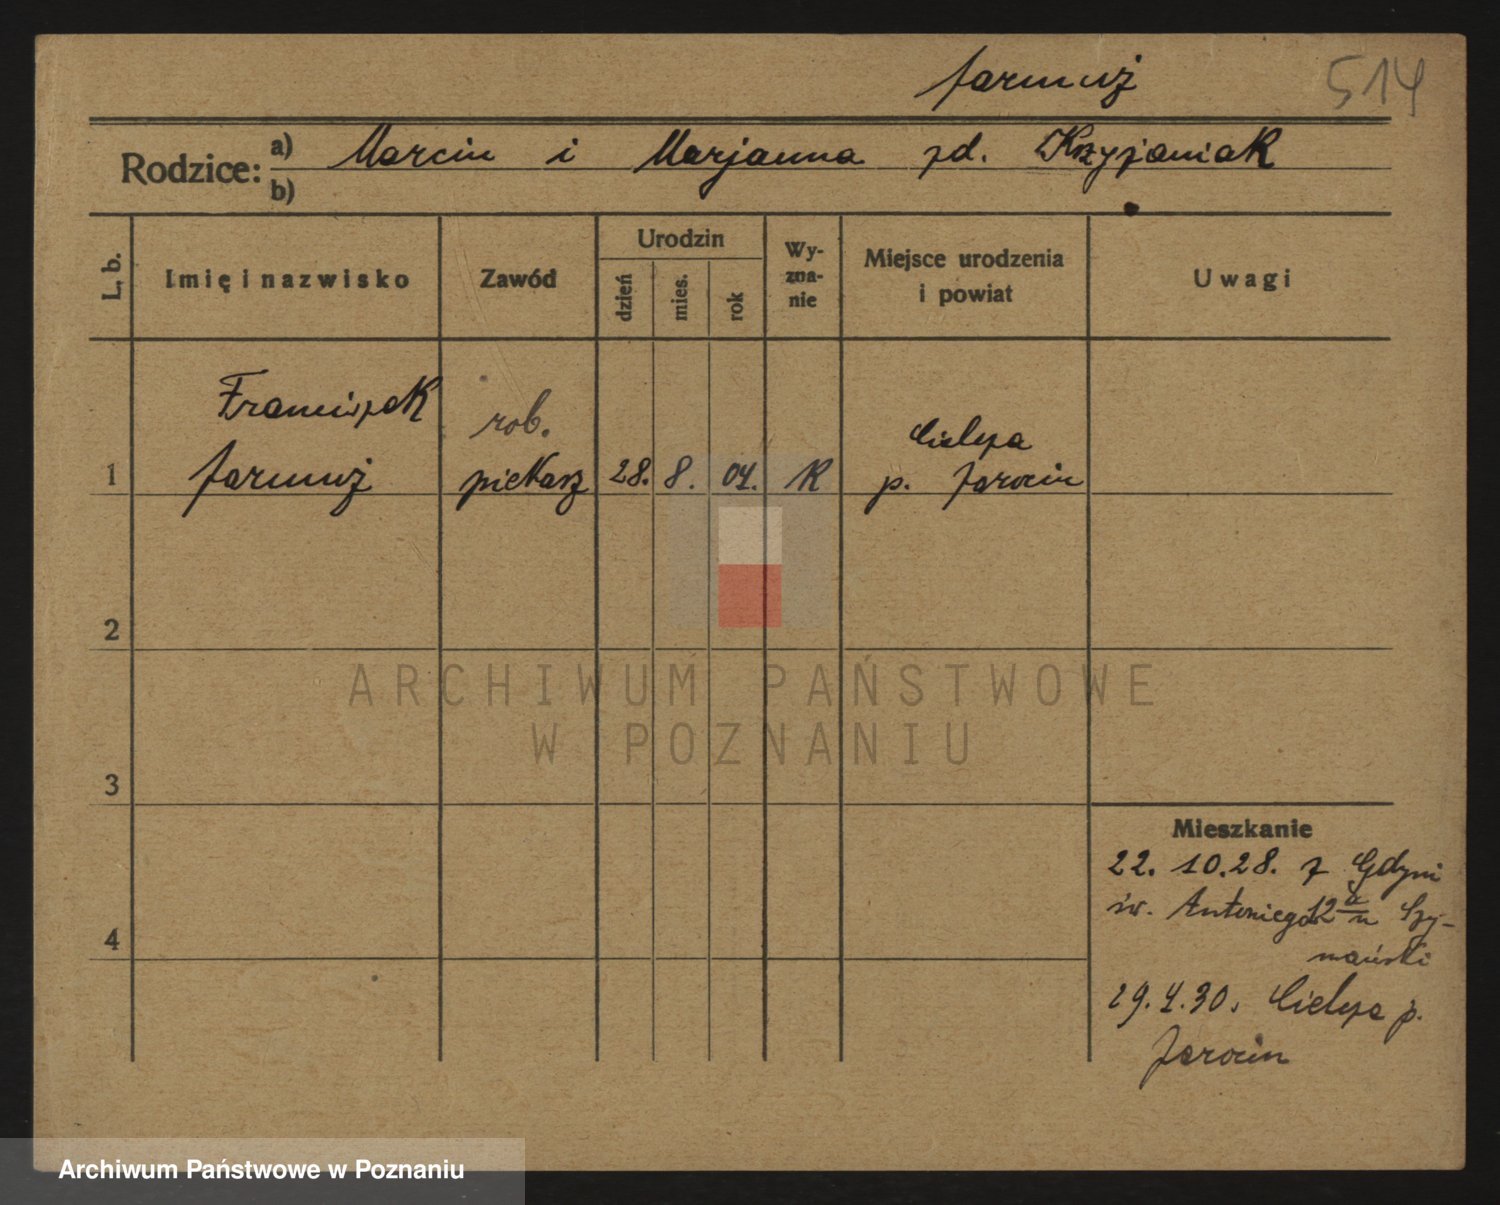 Jarmuż 514
Rodzice: a) Marcin i Marjanna zd. Krzyżaniak
b)
L. b. Imię i nazwisko Zawód Urodzin dzień mies. rok Wy-zna-nie Miejsce urodzenia i powiat Uwagi
Franciszek rob. Cielcza
1 Jarmuż piekarz 28. 8. 04. K p. Jarocin
2
ARCHIWUM PAŃSTWOWE
W POZNANIU
3
Mieszkanie
22. 10. 28. z Gdyni
św. Antoniego 12 Szy-
4
mański
29. 4. 30. Cielcza p.
Jarocin
Archiwum Państwowe w Poznaniu